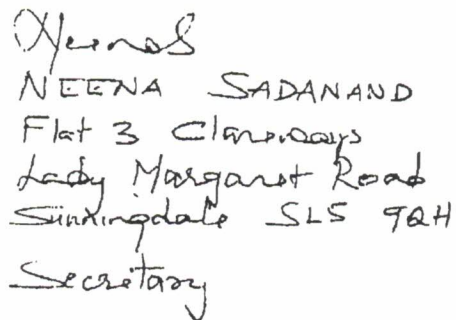 NEENA SADANAND
Flat 3 Clareways
Lady Margaret Road
Sunningdale SL5 9QH
Secretary